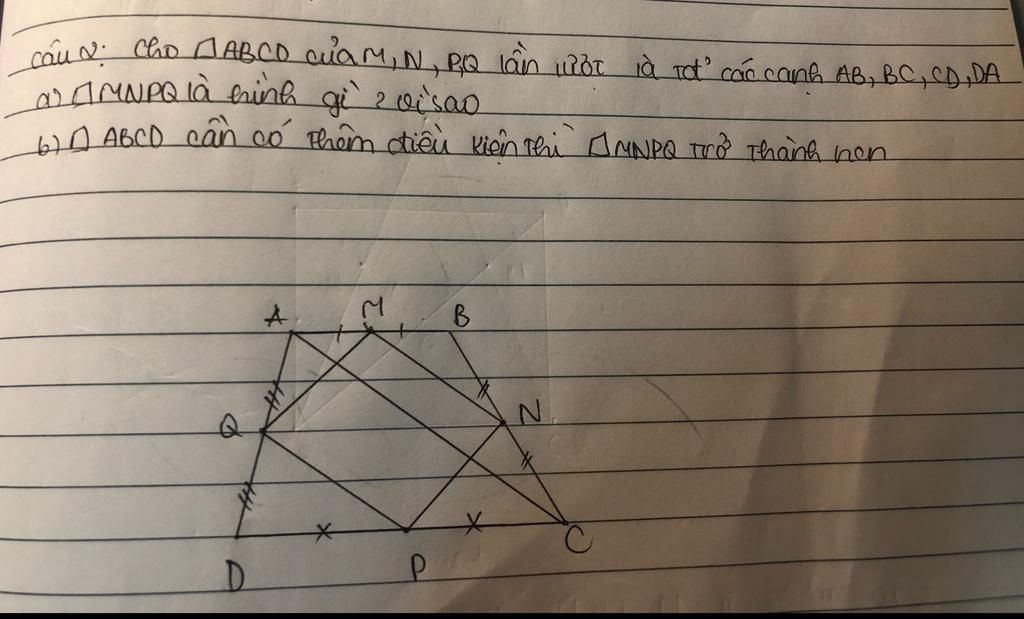 câu 2: Cho □ABCD của M, N, P,Q lần lượt là tđ các cạnh AB, BC, CD, DA
a) □MNPQ là hình gì? vì sao
b) □ ABCD cần có thêm điều kiện thì □MNPQ trở thành hcn
A M B
Q N
D P C